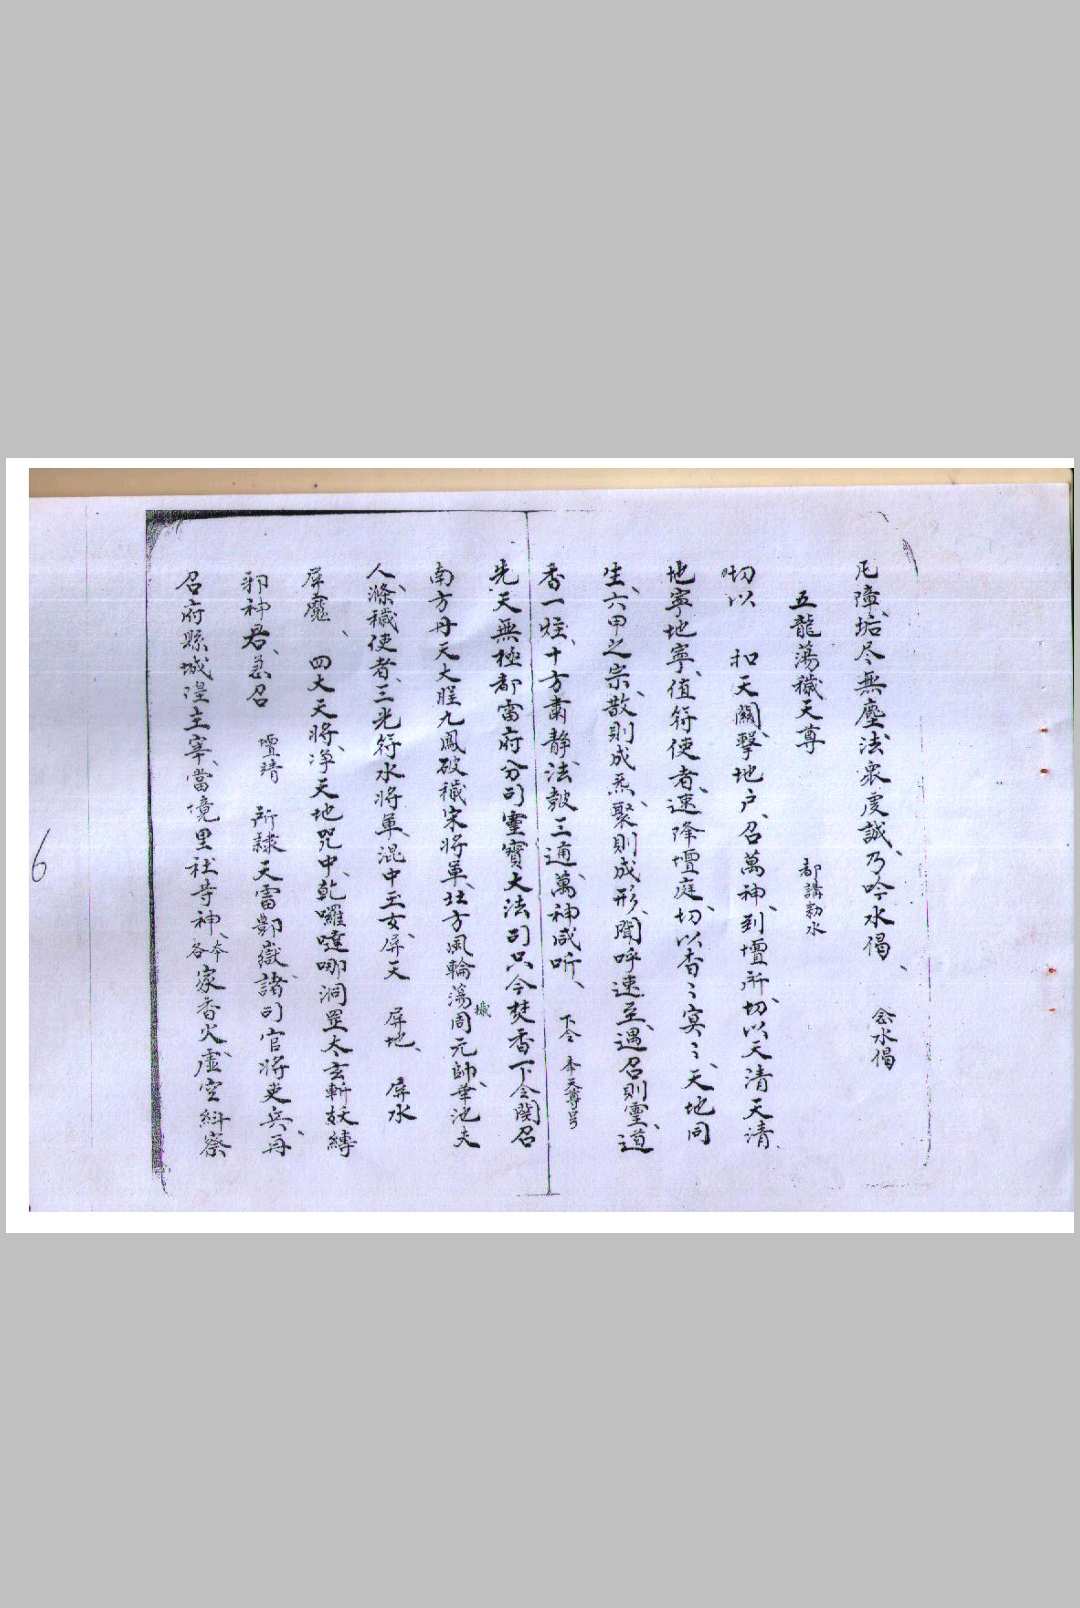 凥障、垢尽無塵、法衆虔誠、乃吟水偈、 念水偈
五龍蕩穢天尊 都講勅水
切以 扣天闗、擊地户、召萬神、到壇所、切以天清天清
地寧地寧、值符使者、速降壇庭、切以杳〻冥〻、天地同
生、六甲之宗、散則成炁、聚則成形、聞呼速至、遇召則靈、道
香一炷、十方肅静、法皷三通、萬神咸听、 下令 奉天尊号
先天無極都雷府分司靈寶大法司只今焚香下令関召
南方丹天大腥九鳳破穢宋将軍、北方風輪蕩穢周元帥、華池夫
人、滌穢使者、三光符水将軍、混中玉女、屏天 屏地、 屏水
屏魔、 四大天将、凈天地咒中、乾囉噠哪洞罡太玄斬妖縛
邪神君、急召 壇靖 所隸天雷酆嶽、諸司官将吏兵、再
召府縣城隍主宰、當境里社等神、各夲家香火、虚空糾察
6